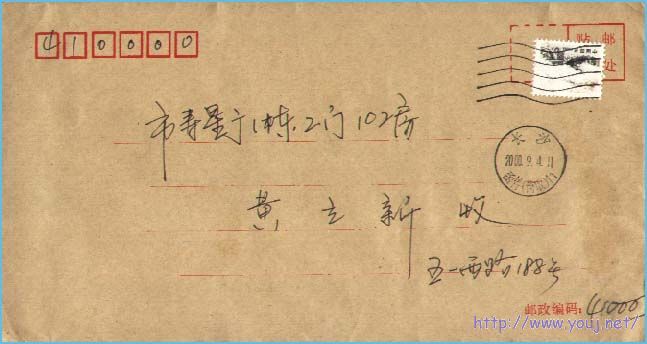 410000
贴 邮
处
市寿星厅1栋2门102房
长 沙
2000.9.4.11
黄立新 收
五一西路188号
邮政编码：41000
http://www.youj.net/